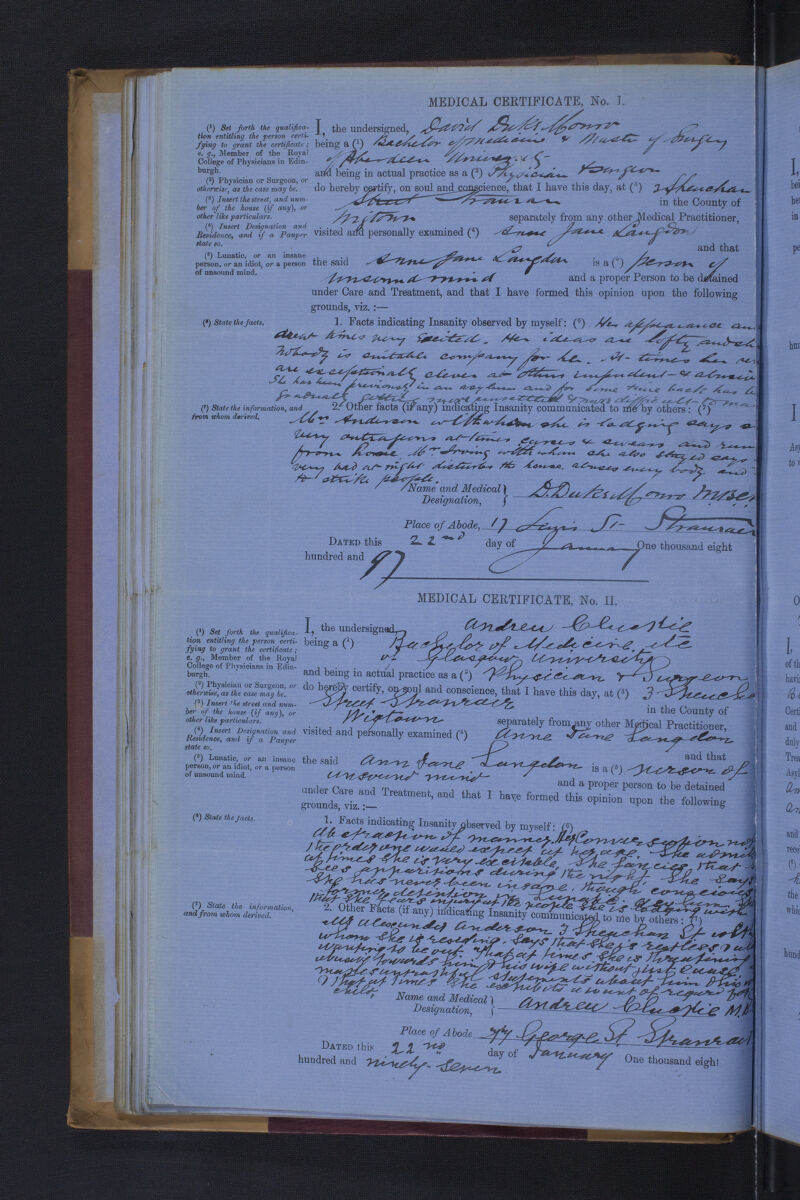 MEDICAL CERTIFICATE, No. I.
(¹) Set forth the qualifica-
tion entitling the person certi-
fying to grant the certificate;
e. g., Member of the Royal
College of Physicians in Edin-
burgh.
(²) Physician or Surgeon, or
otherwise, as the case may be.
(³) Insert the street, and num-
ber of the house (if any), or
other like particulars.
(⁴) Insert Designation and
Residence, and if a Pauper
state so.
(⁵) Lunatic, or an insane
person, or an idiot, or a person
of unsound mind.
I, the undersigned, David Duks Monro
being a (¹) Bachelor of medicine & Master of Surgery
of Aberdeen University
and being in actual practice as a (²) Physician & Surgeon
do hereby certify, on soul and conscience, that I have this day, at (³) 2 Sheuchan
Street Stranraer in the County of
Wigtown separately from any other Medical Practitioner,
visited and personally examined (⁴) Anne Jane Langdon
and that
the said Anne Jane Langdon is a (⁵) person of
unsound mind and a proper Person to be detained
under Care and Treatment, and that I have formed this opinion upon the following
grounds, viz. :—
(⁶) State the facts.
1. Facts indicating Insanity observed by myself: (⁶) Her appearance
at times very excited. Her ideas are lofty and
nobody is suitable company for her. At times her
are exceptionally clever at others impudent & abusive
She has been previously in an asylum and for some time back has
gradually getting more unsettled & more difficult to
(⁷) State the information, and
from whom derived.
2. Other facts (if any) indicating Insanity communicated to me by others: (⁷)
Mrs Anderson with whom she is lodging says
very outrageous at times curses & swears and
from house. Mrs Irving with whom she also stayed says
very bad at night disturbs the house, abuses every body and
to strike people.
Name and Medical Designation, D. Duks Monro M.B.C.
Place of Abode, 17 Lewis St Stranraer
DATED this 22nd day of January One thousand eight
hundred and 97
MEDICAL CERTIFICATE, No. II.
(¹) Set forth the qualifica-
tion entitling the person certi-
fying to grant the certificate;
e. g., Member of the Royal
College of Physicians in Edin-
burgh.
(²) Physician or Surgeon, or
otherwise, as the case may be.
(³) Insert the street and num-
ber of the house (if any), or
other like particulars.
(⁴) Insert Designation and
Residence, and if a Pauper
state so.
(⁵) Lunatic, or an insane
person, or an idiot, or a person
of unsound mind.
I, the undersigned, Andrew Cluckie
being a (¹) Bachelor of Medicine, etc
of Glasgow University
and being in actual practice as a (²) Physician & Surgeon
do hereby certify, on soul and conscience, that I have this day, at (³) 3
Street Stranraer in the County of
Wigtown separately from any other Medical Practitioner,
visited and personally examined (⁴) Anne Jane Langdon
and that
the said Ann Jane Langdon is a (⁵) person of
unsound mind and a proper person to be detained
under Care and Treatment, and that I have formed this opinion upon the following
grounds, viz. :—
(⁶) State the facts.
1. Facts indicating Insanity observed by myself: (⁶)
Abstraction of manner, Her Conversation not
the order one would expect at her age. She
at times she is very excitable, She fancies that
sees apparitions during the night. She says
She has never been insane, though conscious
former detention in Lunatic Asylum.
that she fears
the people she is
with
(⁷) State the information,
and from whom derived.
2. Other Facts (if any) indicating Insanity communicated to me by others: (⁷)
Mr Alexander Anderson 3 Sheuchan St with
whom she is residing. Says that she is restless &
wanting to be out. That at times she is threatening
abusive towards him & his wife without just cause
makes untruthful statements about him &
& that at times she exhibits a want of
child,
Name and Medical Designation, Andrew Cluckie M.B.
Place of Abode 44 George St. Stranraer
DATED this 22nd day of January One thousand eight
hundred and ninety-seven